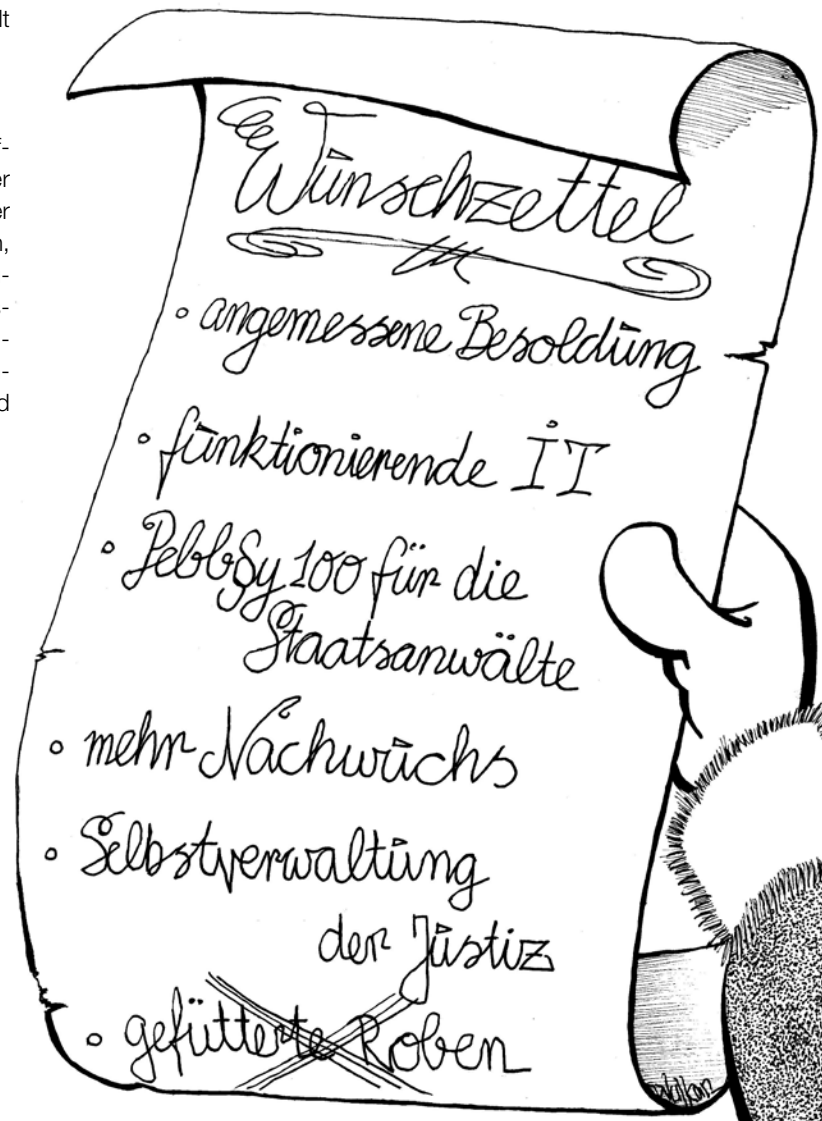 lt
f-
er
er
n,
-
-
-
-
d
Wunschzettel
◦ angemessene Besoldung
◦ funktionierende IT
◦ PebbSy 100 für die
Staatsanwälte
◦ mehr Nachwuchs
◦ Selbstverwaltung
der Justiz
◦ gefütterte Roben